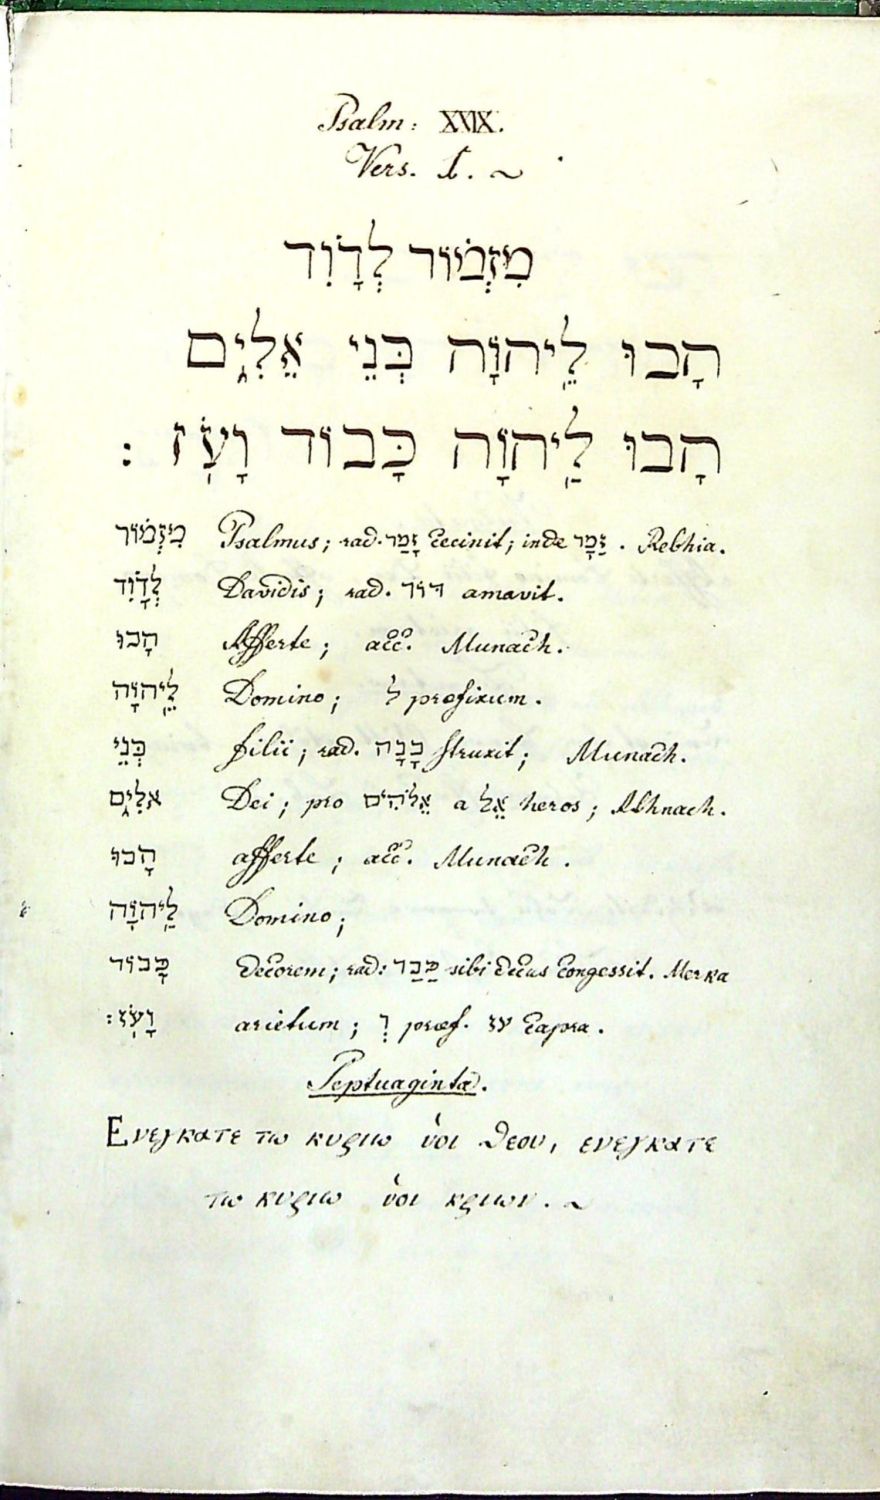 Psalm: XXIX.
Vers. 1. ~
מִזְמוֹר לְדָוִד
הָבוּ לַיהוָה בְּנֵי אֵלִים
הָבוּ לַיהוָה כָּבוֹד וָעֹז :
מִזְמוֹר Psalmus; rad. זָמַר cecinit; inde זִמֵּר. Rebhia.
לְדָוִד Davidis; rad. דוד amavit.
הָבוּ Afferte; acc. Munach.
לַיהוָה Domino; ל prefixum.
בְּנֵי filii; rad. בָנָה struxit; Munach.
אלִים Dei; pro אֱלֹהִים a אֵל heros; Athnach.
הָבוּ afferte; acc. Munach.
לַיהוָה Domino;
כָּבוֹד decorem; rad: כָּבַד sibi decus congessit. Merka
וָעֹז: arietum; וְ præf. עז capra.
Septuaginta.
Ενεγκατε τω κυριω ὑοι θεου, ενεγκατε
τω κυριω ὑοι κριων. ~